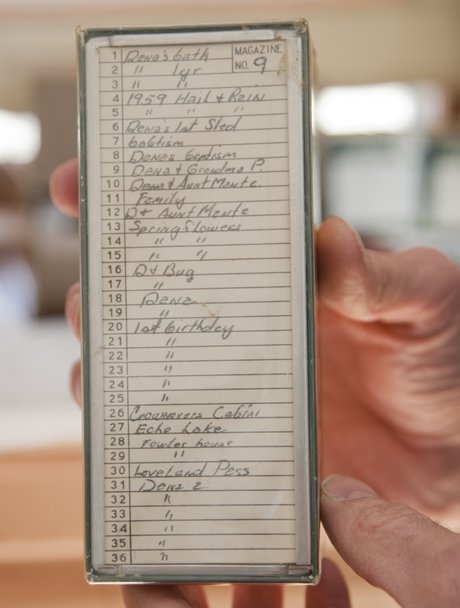 MAGAZINE
NO. 9
1 Dena's bath
2 " 1yr
3 " "
4 1959 Hail & Rain
5 " " "
6 Dena's 1st Sled
7 baptism
8 Denas baptism
9 Dena & Grandma P.
10 Dena & Aunt Monte
11 Family
12 D & Aunt Monte
13 Spring flowers
14 " "
15 " "
16 D & Bug
17 "
18 Dena
19 "
20 1st birthday
21 "
22 "
23 "
24 "
25 "
26 Crownovers Cabin
27 Echo Lake
28 Fowler house
29 "
30 Loveland Pass
31 Dena 2
32 "
33 "
34 "
35 "
36 "